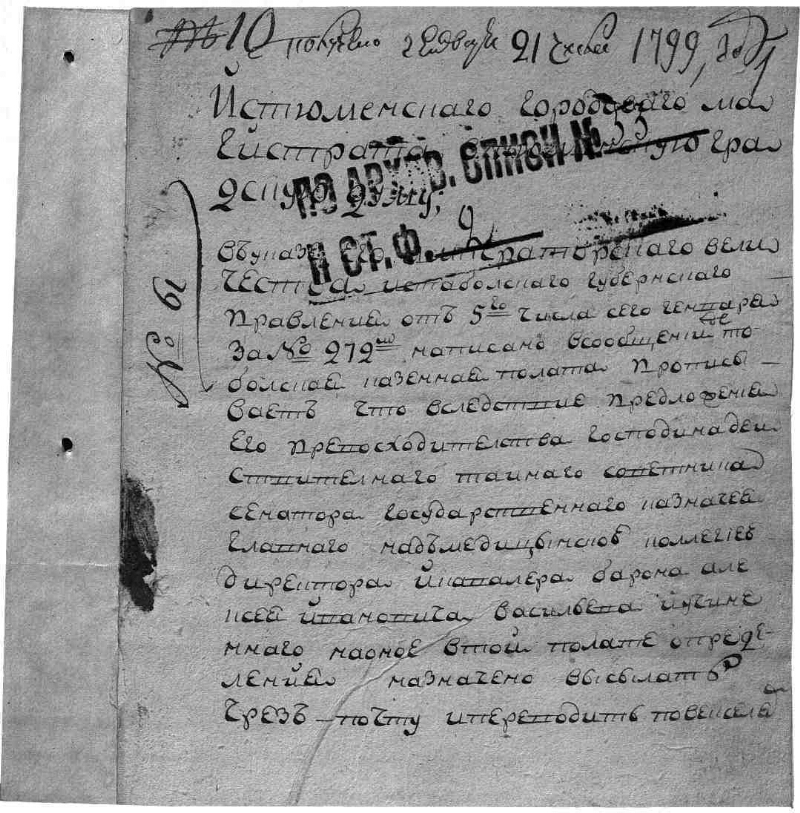 № 10 получено генваря 21 числа 1799, год
Истюменскаго городоваго ма
гистрата градскую
думу;
ПО АРХИВ. ОПИСИ № 33
И СТ. Ф. 2
Въуказе Его Императорскаго вели
чества истоболскаго губернскаго
правления отъ 5го числа сего генваря
за № 272м написано всообщении де то
болская казенная полата прописы
ваетъ что вследствие предложения
Его превосходителства господина деи
ствителнаго таинаго советника
сенатора государственнаго казначея
главнаго надъмедицынскою коллегиею
директора икавалера барона але
ксея ивановича васильева иучине
ннаго наоное втой полате опреде
ления назначено высылать
чрезъ почту ипереводить повексела
№ 19